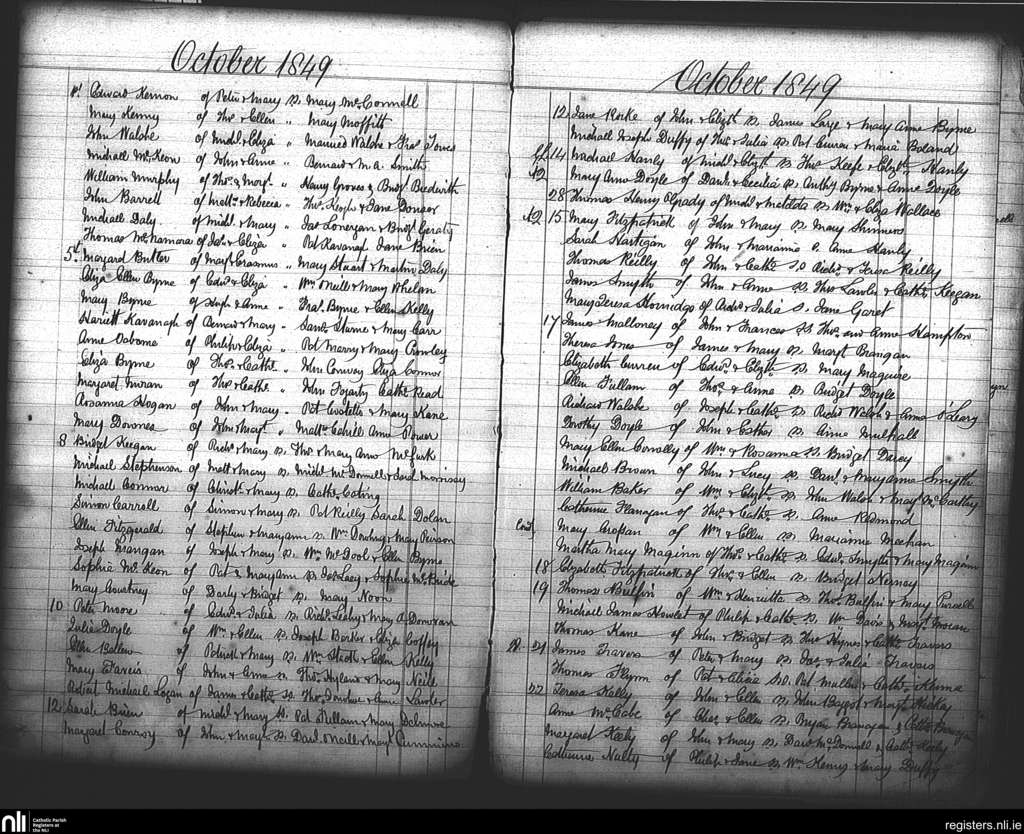 October 1849
Edward Kernon of Peter & Mary S. Mary McConnell
Mary Kenny of Thos & Ellen " Mary Moffitt
John Walshe of Michl & Eliza "
Michael McKeon of John & Anne " Bernard & M. A. Smith
William Murphy of Thos & Margt "
John Barrett of & Rebecca " Thos Keogh & Jane
Michael Daly of Michl & Mary " Jas Lonergan & Bridgt
Thomas McNamara of Jas & Eliza " Pat Kavanagh Jane Brien
Margard Butler of " Mary Stuart & Martin Daly
Eliza Ellen Byrne of Edwd & Eliza " Wm & Mary Whelan
Mary Byrne of Hugh & Anne " Byrne & Ellen Kelly
Harriett Kavanagh of Bernard & Mary " & Mary Carr
Anne Osborne of Philip & Eliza " Pat & Mary Crowley
Eliza Byrne of Thos & Cathe " John Conway Eliza Connor
Margaret of Thos & Cathe " John Fogarty Cathe Read
Rosanna Hogan of John & Mary " Pat Costello & Mary Kane
Mary of John & Margt " Matt Cahill Anne Power
8 Bridget Keegan of Richd & Mary S. Thos & Mary Anne
Michael Stephenson of Matt & Mary S. Michl McDonnell & Morrissy
Michael Connor of & Mary S. Cathe
Simon Carroll of Simon & Mary S. Pat Reilly Sarah Dolan
Ellen Fitzgerald of Stephen & Maryann S. Wm & Mary
Joseph Mangan of Joseph & Mary S. Wm McDool & Ellen Byrne
Sophia McKeon of Pat & Maryann S. Jas Lacy & Sophia McBride
Mary Courtney of Darby & Bridget S. Mary Noon
10 Peter Moore of Edwd & Julia S. Richd Leahy & Mary A Donovan
Julia Doyle of Wm & Ellen S. Joseph Barker & Eliza Coffey
Ellen of Patrick & Mary S. & Ellen Kelly
Mary of John & Anne S. Thos Hyland & Mary Neile
Michael Logan of James & Cathe S. Thos & Anne Lawlor
12 Sarah Brien of Michl & Mary S. Pat Fullam & Mary
Margaret Conroy of John & Margt S. Danl Neill & Margt
October 1849
12 Jane of John & Elizth S. James & Mary Anne Byrne
Michael Joseph Duffy of Thos & Julia S. Pat Curran & Maria Boland
14 Michael Hanly of Michl & Elizth S. Thos Keefe & Elizth Hanly
Mary Anne Doyle of Danl & Cecilia S. Anthy Byrne & Anne Doyle
28 Thomas Henry Grady of Michl & Matilda S. Wm & Eliza Wallace
15 Mary Fitzpatrick of John & Mary S. Mary Skinners
Sarah Hartigan of John & Marianne S. Anne Hanly
Thomas Reilly of John & Cathe S. Richd & Reilly
James Smyth of John & Anne S. Thos Lawler & Cathe Keegan
Mary Teresa Hornidge of Richd & Julia S. Jane Garet
17 James Malloney of John & Frances S. Thos and Anne Hampton
Theresa Jones of James & Mary S. Margt Brangan
Elizabeth Curren of Edwd & Elizth S. Mary Maguire
Ellen Fullam of Thos & Anne S. Bridget Doyle
Richard Walshe of Joseph & Cathe S. Richd Walsh & Anne O'Leary
Dorothy Doyle of John & Esther S. Anne Mulhall
Mary Ellen Connolly of Wm & Rosanna S. Bridget Darcy
Michael Brown of John & Lucy S. Danl & Maryanne Smyth
William Baker of Wm & Elizth S. John Walsh & Margt McCarthy
Catherine Flanagan of Thos & Cathe S. Anne Redmond
Mary of Wm & Ellen S. Marianne Meehan
Martha Mary Maginn of Thos & Cathe S. Edwd Smyth & Mary Maginn
18 Elizabeth Fitzpatrick of Thos & Ellen S. Bridget
19 Thomas of Wm & Henrietta S. Thos & Mary Purcell
Michael James Howlet of Philip & Cathe S. Wm Davis & Margt
Thomas Kane of John & Bridget S. Thos Hynes & Cathe Travers
21 James Travers of Peter & Mary S. Jas & Julia Travers
Thomas Flynn of Pat & Alicia S. Pat Mullen & Cathe
22 Teresa Kelly of John & Ellen S. John & Margt
Anne McCabe of Chas & Ellen S. Bryan Branagan & Cathe Branagan
Margaret Keely of John & Mary S. Davd McDonnell & Cathe Keely
Catherine Nulty of Philip & Jane S. Wm Henry & Duffy
nli
Catholic Parish
Registers at
the NLI
registers.nli.ie